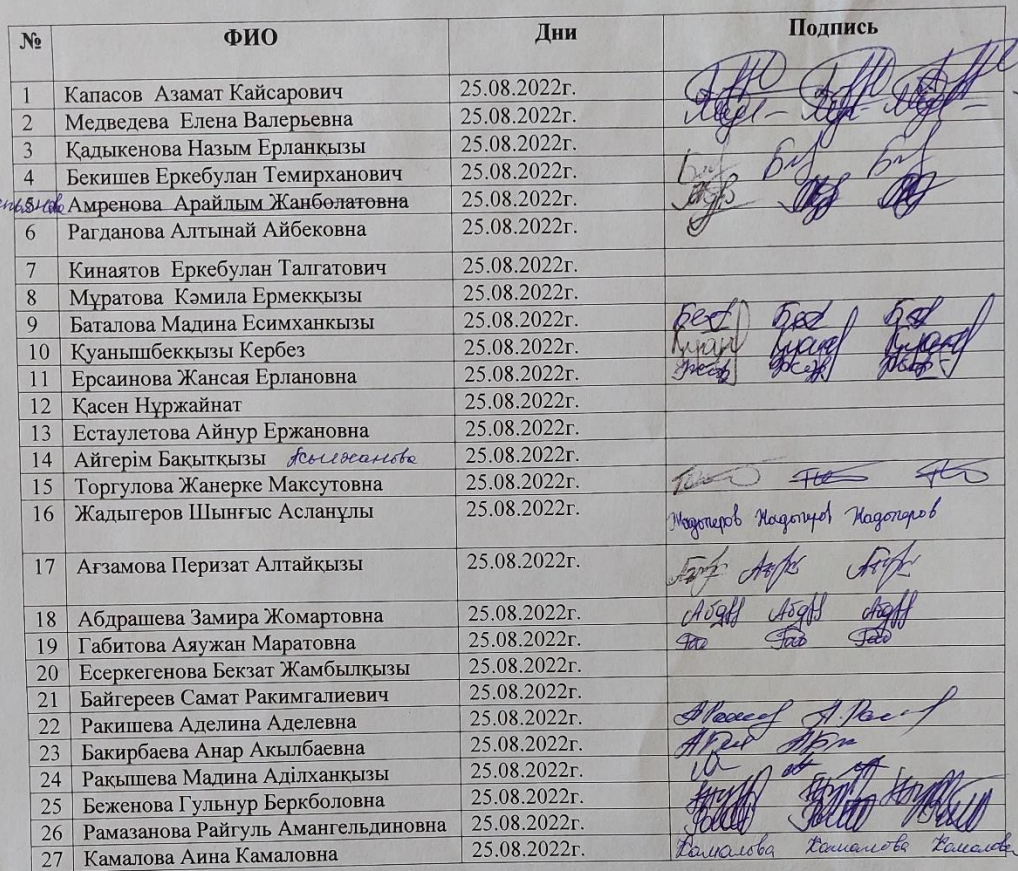 № ФИО Дни Подпись
1 Капасов Азамат Кайсарович 25.08.2022г.
2 Медведева Елена Валерьевна 25.08.2022г.
3 Қадыкенова Назым Ерланқызы 25.08.2022г.
4 Бекишев Еркебулан Темирханович 25.08.2022г.
5 Амренова Арайлым Жанболатовна 25.08.2022г.
6 Рагданова Алтынай Айбековна 25.08.2022г.
7 Кинаятов Еркебулан Талгатович 25.08.2022г.
8 Мұратова Кәмила Ермекқызы 25.08.2022г.
9 Баталова Мадина Есимханкызы 25.08.2022г.
10 Қуанышбекқызы Кербез 25.08.2022г.
11 Ерсаинова Жансая Ерлановна 25.08.2022г.
12 Қасен Нұржайнат 25.08.2022г.
13 Естаулетова Айнур Ержановна 25.08.2022г.
14 Айгерім Бақытқызы 25.08.2022г.
15 Торгулова Жанерке Максутовна 25.08.2022г.
16 Жадыгеров Шынғыс Асланұлы 25.08.2022г.
17 Ағзамова Перизат Алтайқызы 25.08.2022г.
18 Абдрашева Замира Жомартовна 25.08.2022г.
19 Габитова Аяужан Маратовна 25.08.2022г.
20 Есеркегенова Бекзат Жамбылқызы 25.08.2022г.
21 Байгереев Самат Ракимгалиевич 25.08.2022г.
22 Ракишева Аделина Аделевна 25.08.2022г.
23 Бакирбаева Анар Акылбаевна 25.08.2022г.
24 Рақышева Мадина Аділханқызы 25.08.2022г.
25 Беженова Гульнур Беркболовна 25.08.2022г.
26 Рамазанова Райгуль Амангельдиновна 25.08.2022г.
27 Камалова Аина Камаловна 25.08.2022г. Камалова Камалова Камалова